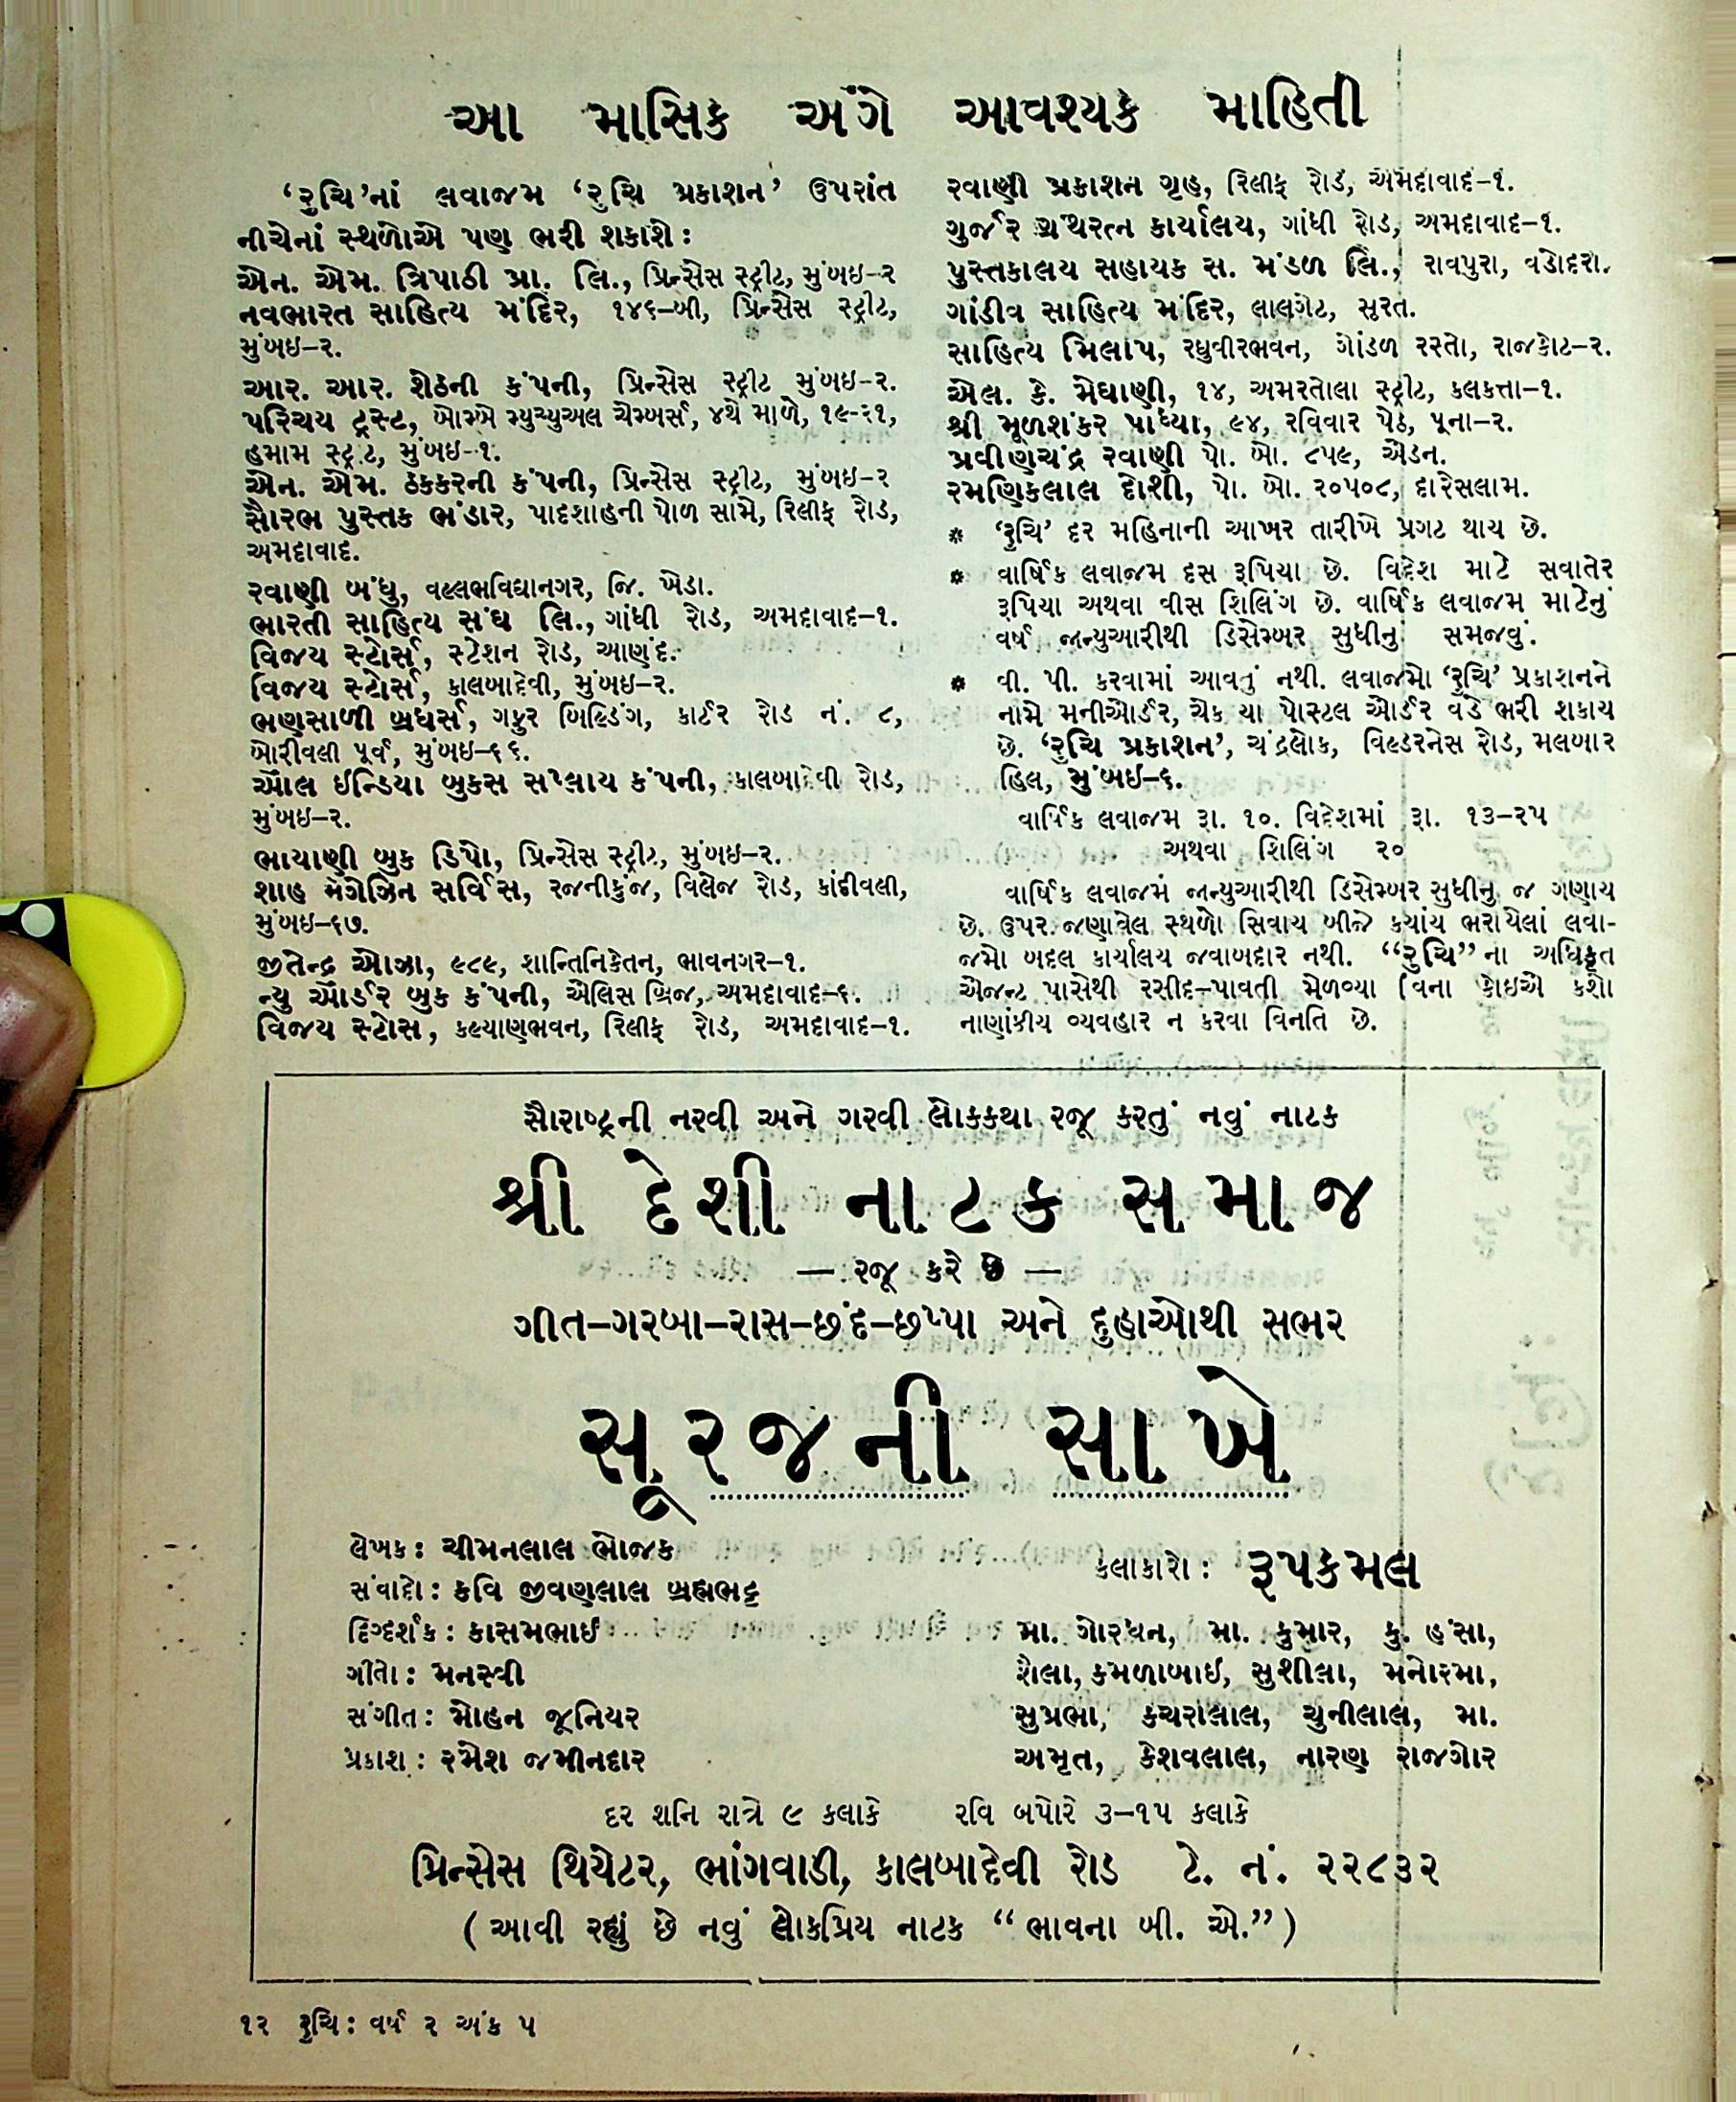 આ માસિક અંગે આવશ્યક માહિતી
‘રુચિ’નાં લવાજમ ‘રુચિ પ્રકાશન’ ઉપરાંત
નીચેનાં સ્થળોએ પણ ભરી શકાશે :
એન. એમ. ત્રિપાઠી પ્રા. લિ., પ્રિન્સેસ સ્ટ્રીટ, મુંબઇ-૨
નવભારત સાહિત્ય મંદિર, ૧૪૬-બી, પ્રિન્સેસ સ્ટ્રીટ,
મુંબઇ-૨.
આર. આર. શેઠની કંપની, પ્રિન્સેસ સ્ટ્રીટ મુંબઇ-૨.
પરિચય ટ્રસ્ટ, બોમ્બે મ્યુચ્યુઅલ ચેમ્બર્સ, ૪થે માળે, ૧૯-૨૧,
હમામ સ્ટ્રીટ, મુંબઇ-૧.
એન. એમ. ઠક્કરની કંપની, પ્રિન્સેસ સ્ટ્રીટ, મુંબઇ-૨
સૌરભ પુસ્તક ભંડાર, પાદશાહની પોળ સામે, રિલીફ રોડ,
અમદાવાદ.
રવાણી બંધુ, વલ્લભવિદ્યાનગર, જિ. ખેડા.
ભારતી સાહિત્ય સંઘ લિ., ગાંધી રોડ, અમદાવાદ-૧.
વિજય સ્ટોર્સ, સ્ટેશન રોડ, આણંદ.
વિજય સ્ટોર્સ, કાલબાદેવી, મુંબઇ-૨.
ભણસાળી બ્રધર્સ, ગફુર બિલ્ડિંગ, કાર્ટર રોડ નં. ૮,
બોરીવલી પૂર્વ, મુંબઇ-૬૬.
ઑલ ઇન્ડિયા બુકસ સપ્લાય કંપની, કાલબાદેવી રોડ,
મુંબઇ-૨.
ભાયાણી બુક ડિપો, પ્રિન્સેસ સ્ટ્રીટ, મુંબઇ-૨.
શાહ મેગેઝિન સર્વિસ, રજનીકુંજ, વિલેજ રોડ, કાંદીવલી,
મુંબઇ-૬૭.
જીતેન્દ્ર ઓઝા, ૯૮૯, શાન્તિનિકેતન, ભાવનગર-૧.
ન્યુ ઑર્ડર બુક કંપની, એલિસ બ્રિજ, અમદાવાદ-૬.
વિજય સ્ટોસ, કલ્યાણભવન, રિલીફ રોડ, અમદાવાદ-૧.
રવાણી પ્રકાશન ગૃહ, રિલીફ રોડ, અમદાવાદ-૧.
ગુર્જર ગ્રંથરત્ન કાર્યાલય, ગાંધી રોડ, અમદાવાદ-૧.
પુસ્તકાલય સહાયક સ. મંડળ લિ., રાવપુરા, વડોદરા.
ગાંડીવ સાહિત્ય મંદિર, લાલગેટ, સુરત.
સાહિત્ય મિલાપ, રઘુવીરભવન, ગોંડળ રસ્તો, રાજકોટ-૨.
એલ. કે. મેઘાણી, ૧૪, અમરતોલા સ્ટ્રીટ, કલકત્તા-૧.
શ્રી મૂળશંકર પાંધ્યા, ૯૪, રવિવાર પેઠ, પૂના-૨.
પ્રવીણચંદ્ર રવાણી પો. બો. ૮૫૯, એડન.
રમણિકલાલ દોશી, પો. બો. ૨૦૫૦૮, દારેસલામ.
* ‘રુચિ’ દર મહિનાની આખર તારીખે પ્રગટ થાય છે.
* વાર્ષિક લવાજમ દસ રૂપિયા છે. વિદેશ માટે સવાતેર
રૂપિયા અથવા વીસ શિલિંગ છે. વાર્ષિક લવાજમ માટેનું
વર્ષ જાન્યુઆરીથી ડિસેમ્બર સુધીનું સમજવું.
* વી. પી. કરવામાં આવતું નથી. લવાજમો ‘રુચિ’ પ્રકાશનને
નામે મનીઑર્ડર, ચેક યા પોસ્ટલ ઑર્ડર વડે ભરી શકાય
છે. ‘રુચિ પ્રકાશન’, ચંદ્રલોક, વિલ્ડરનેસ રોડ, મલબાર
હિલ, મુંબઇ-૬.
વાર્ષિક લવાજમ રૂા. ૧૦. વિદેશમાં રૂા. ૧૩-૨૫
અથવા શિલિંગ ૨૦
વાર્ષિક લવાજમ જાન્યુઆરીથી ડિસેમ્બર સુધીનું જ ગણાય
છે. ઉપર જણાવેલ સ્થળો સિવાય બીજે ક્યાંય ભરાયેલાં લવા-
જમો બદલ કાર્યાલય જવાબદાર નથી. “રુચિ”ના અધિકૃત
એજન્ટ પાસેથી રસીદ-પાવતી મેળવ્યા વિના કોઇએ કશો
નાણાંકીય વ્યવહાર ન કરવા વિનતિ છે.
સૌરાષ્ટ્રની નરવી અને ગરવી લોકકથા રજૂ કરતું નવું નાટક
શ્રી દેશી નાટક સમાજ
— રજૂ કરે છે —
ગીત-ગરબા-રાસ-છંદ-છપ્પા અને દુહાઓથી સભર
સૂરજની સાખે
લેખક : ચીમનલાલ ભોજક
સંવાદો : કવિ જીવણલાલ બ્રહ્મભટ્ટ
દિગ્દર્શક : કાસમભાઈ
ગીતો : મનસ્વી
સંગીત : મોહન જૂનિયર
પ્રકાશ : રમેશ જમીનદાર
કલાકારો : રૂપકમલ
મા. ગોરધન, મા. કુમાર, કુ. હંસા,
શૈલા, કમળાબાઇ, સુશીલા, મનોરમા,
સુપ્રભા, કચરાલાલ, ચુનીલાલ, મા.
અમૃત, કેશવલાલ, નારણ રાજગોર
દર શનિ રાત્રે ૯ કલાકે રવિ બપોરે ૩-૧૫ કલાકે
પ્રિન્સેસ થિયેટર, ભાંગવાડી, કાલબાદેવી રોડ ટે. નં. ૨૨૮૩૨
( આવી રહ્યું છે નવું લોકપ્રિય નાટક “ ભાવના બી. એ.” )
૧૨ રુચિ : વર્ષ ૨ અંક ૫